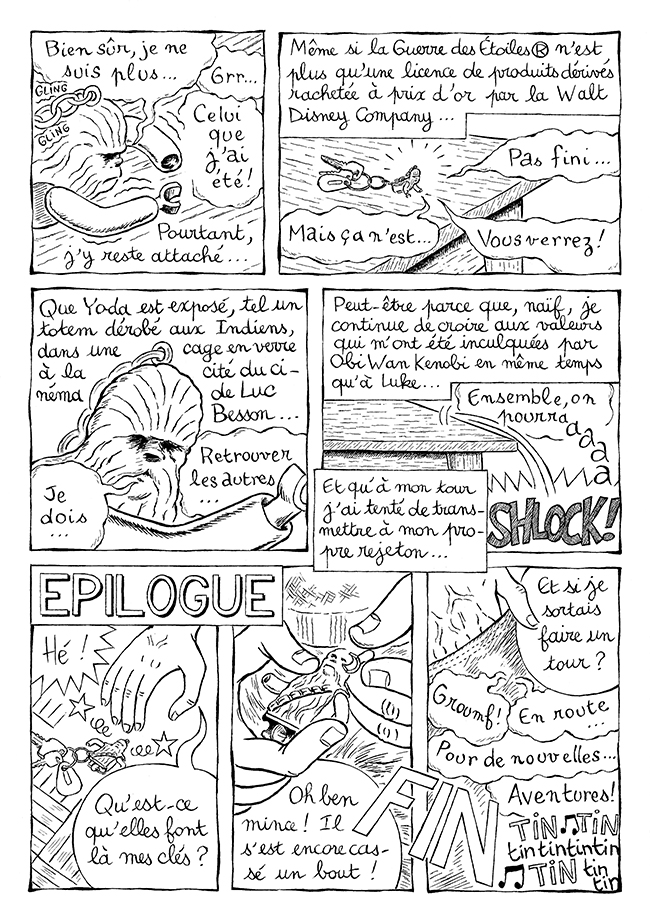 Bien sûr, je ne
suis plus...
Grr...
GLING
GLING
Celui
que
j'ai
été!
Pourtant,
j'y reste attaché...
Même si la Guerre des Étoiles® n'est
plus qu'une licence de produits dérivés
rachetée à prix d'or par la Walt
Disney Company...
Pas fini...
Mais ça n'est...
Vous verrez!
Que Yoda est exposé, tel un
totem dérobé aux Indiens,
dans une cage en verre
à la cité du ci-
néma de Luc
Besson...
Retrouver
les autres
...
Je
dois
...
Peut-être parce que, naïf, je
continue de croire aux valeurs
qui m'ont été inculquées par
Obi Wan Kenobi en même temps
qu'à Luke...
Ensemble, on
pourra
a
a
a
a
SHLOCK!
Et qu'à mon tour
j'ai tenté de trans-
mettre à mon pro-
pre rejeton...
EPILOGUE
Hé!
Qu'est-ce
qu'elles font
là mes clés?
Oh ben
mince! Il
s'est encore cas-
sé un bout!
Et si je
sortais
faire un
tour?
Groumf!
En route
...
Pour de nouvelles...
Aventures!
FIN
TIN♫TIN
tintintintin
♫TIN tin
tin